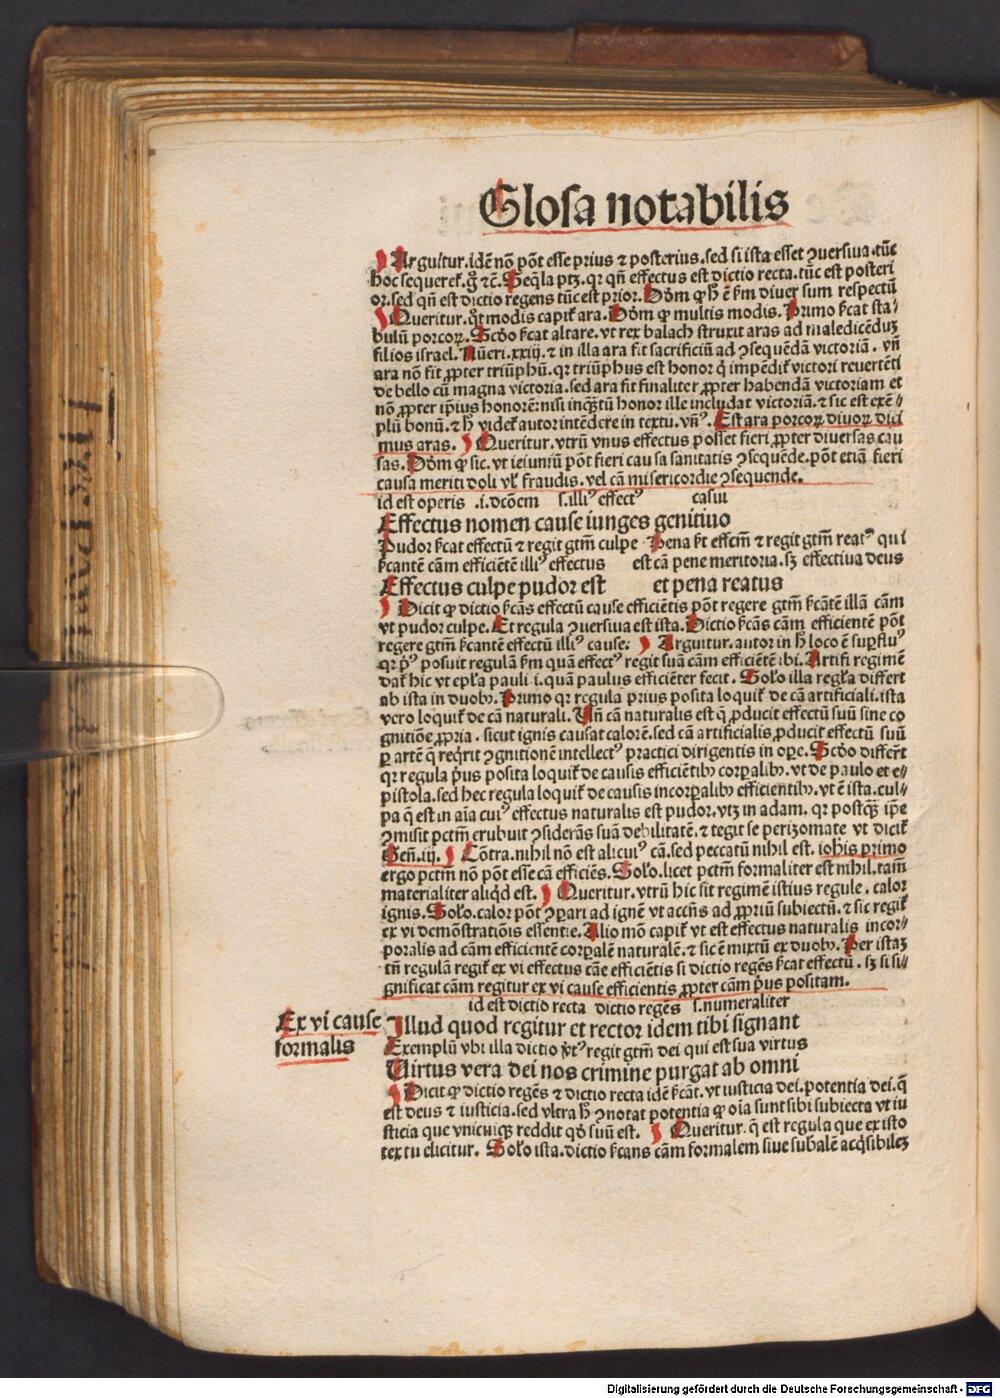 Glosa notabilis
Arguitur.idē nō pōt esse prius ⁊ posterius.sed si ista esset ꝯuersiua.tūc
hoc sequeret᷑.g̊ ⁊c̄.Seq̄la ptꝫ.qꝛ qn̄ effectus est dictio recta.tūc est posteri
or.sed qn̄ est dictio regens tūc est prior.Dōm ꝙ ħ ē ẜm diuersum respectū
Queritur.q̊t modis capit᷑ ara.Dōm ꝙ multis modis.Primo ẜcat sta⸗
bulū porcoꝝ.Scd̓o ẜcat altare.vt rex balach struxit aras ad maledicēduꝫ
filios israel.Nūeri.xxiij.⁊ in illa ara fit sacrificiū ad ꝯsequēdā victoriā.vn̄
ara nō fit ꝓpter triūphū.qꝛ triūphus est honor q̇ impēdit᷑ victori reuertēti
de bello cū magna victoria.sed ara fit finaliter ꝓpter habendā victoriam et
nō ꝓpter ip̄ius honorē:nisi inqꝫtū honor ille includat victoriā.⁊ sic est exē⸗
plū bonū.⁊ ħ videt᷑ autor intēdere in textu.vn̄ꝰ.Est ara porcoꝝ diuoꝝ dici
mus aras. Queritur.vtrū vnus effectus posset fieri ꝓpter diuersas cau
sas.Dōm ꝙ sic.vt ieiuniū pōt fieri causa sanitatis ꝯseqēde.pōt etiā fieri
causa meriti doli vl᷑ fraudis.vel cā misericordie ꝯsequende.
id est operis .i.dcōem s.illiꝰ effectꝰ casui
Effectus nomen cause iunges genitiuo
Pudor ẜcat effectū ⁊ regit gtm̄ culpe Pena ẜt effcm̄ ⁊ regit gtm̄ reatꝰ qui
ẜcantē cām efficiētē illiꝰ effectus est cā pene meritoria.sꝫ effectiua deus
Effectus culpe pudor est et pena reatus
Dicit ꝙ dictio ẜcās effectū cause efficiētis pōt regere gtm̄ ẜcātē illā cām
vt pudor culpe.Et regula ꝯuersiua est ista.Dictio ẜcās cām efficientē pōt
regere gtm̄ ẜcantē effectū illiꝰ cause: Arguitur.autor in ħ loco ē suꝑfluꝰ
qꝛ pꝰ posuit regulā ẜm quā effectꝰ regit suā cām efficiētē ibi.Artifi regimē
dat᷑ hic vt epl̄a pauli .i.quā paulus efficiēter fecit.Sol̓o illa regl̄a differt
ab ista in duobꝰ.Primo qꝛ regula prius posita loquit᷑ de cā artificiali.ista
vero loquit᷑ de cā naturali.Vn̄ cā naturalis est q̄ ꝓducit effectū suū sine co
gnitiōe ꝓpria.sicut ignis causat calorē.sed cā artificialis ꝓducit effectū suū
ꝑ artē q̄ reqrit ꝯgnitionē intellectꝰ practici dirigentis in oꝑe.Scd̓o differt
qꝛ regula pꝰus posita loquit᷑ de causis efficiētibꝰ corꝑalibꝰ.vt de paulo et e⸗
pistola.sed hec regula loquit᷑ de causis incorꝑalibꝰ efficientibꝰ.vt ē ista.cul⸗
pa q̄ est in aīa cuiꝰ effectus naturalis est pudor.vtꝫ in adam.qꝛ postqꝫ ip̄e
ꝯmisit pctm̄ erubuit ꝯsiderās suā debilitatē.⁊ tegit se perizomate vt dicit᷑
Gen̄.iij. Cōtra.nihil nō est alicuiꝰ cā.sed peccatū nihil est.iohis primo
ergo pctm̄ nō pōt esse cā efficiēs.Sol̓o.licet pctm̄ formaliter est nihil.tam̄
materialiter aliqd est. Queritur.vtrū hic sit regimē istius regule.calor
ignis.Sol̓o.calor pōt ꝯpari ad ignē vt accn̄s ad ꝓpriū subiectū.⁊ sic regit᷑
ex vi demōstratiōis essentie.Alio mō capit᷑ vt est effectus naturalis incor⸗
poralis ad cām efficientē corꝑalē naturalē.⁊ sic ē mixtū ex duobꝰ.Per istaꝫ
tn̄ regulā regit᷑ ex vi effectus cāe efficiētis si dictio regēs ẜcat effectū.sꝫ si si⸗
gnificat cām regitur ex vi cause efficientis ꝓpter cām pꝰus positam.
id est dictio recta dictio regēs s.numeraliter
Ex vi cause
formalis
Illud quod regitur et rector idem tibi signant
Exemplū vbi illa dictio v̓tꝰ regit gtm̄ dei qui est sua virtus
Virtus vera dei nos crimine purgat ab omni
Dicit ꝙ dictio regēs ⁊ dictio recta idē ẜcāt.vt iusticia dei.potentia dei.q̄
est deus ⁊ iusticia.sed vltra ħ ꝯnotat potentia ꝙ oīa sunt sibi subiecta vt iu
sticia que vnicuiqꝫ reddit qd̓ suū est. Queritur.q̄ est regula que ex isto
textu elicitur. Sol̓o ista.dictio ẜcans cām formalem siue subalē acq̇sibileꝫ
Digitalisierung gefördert durch die Deutsche Forschungsgemeinschaft - DFG